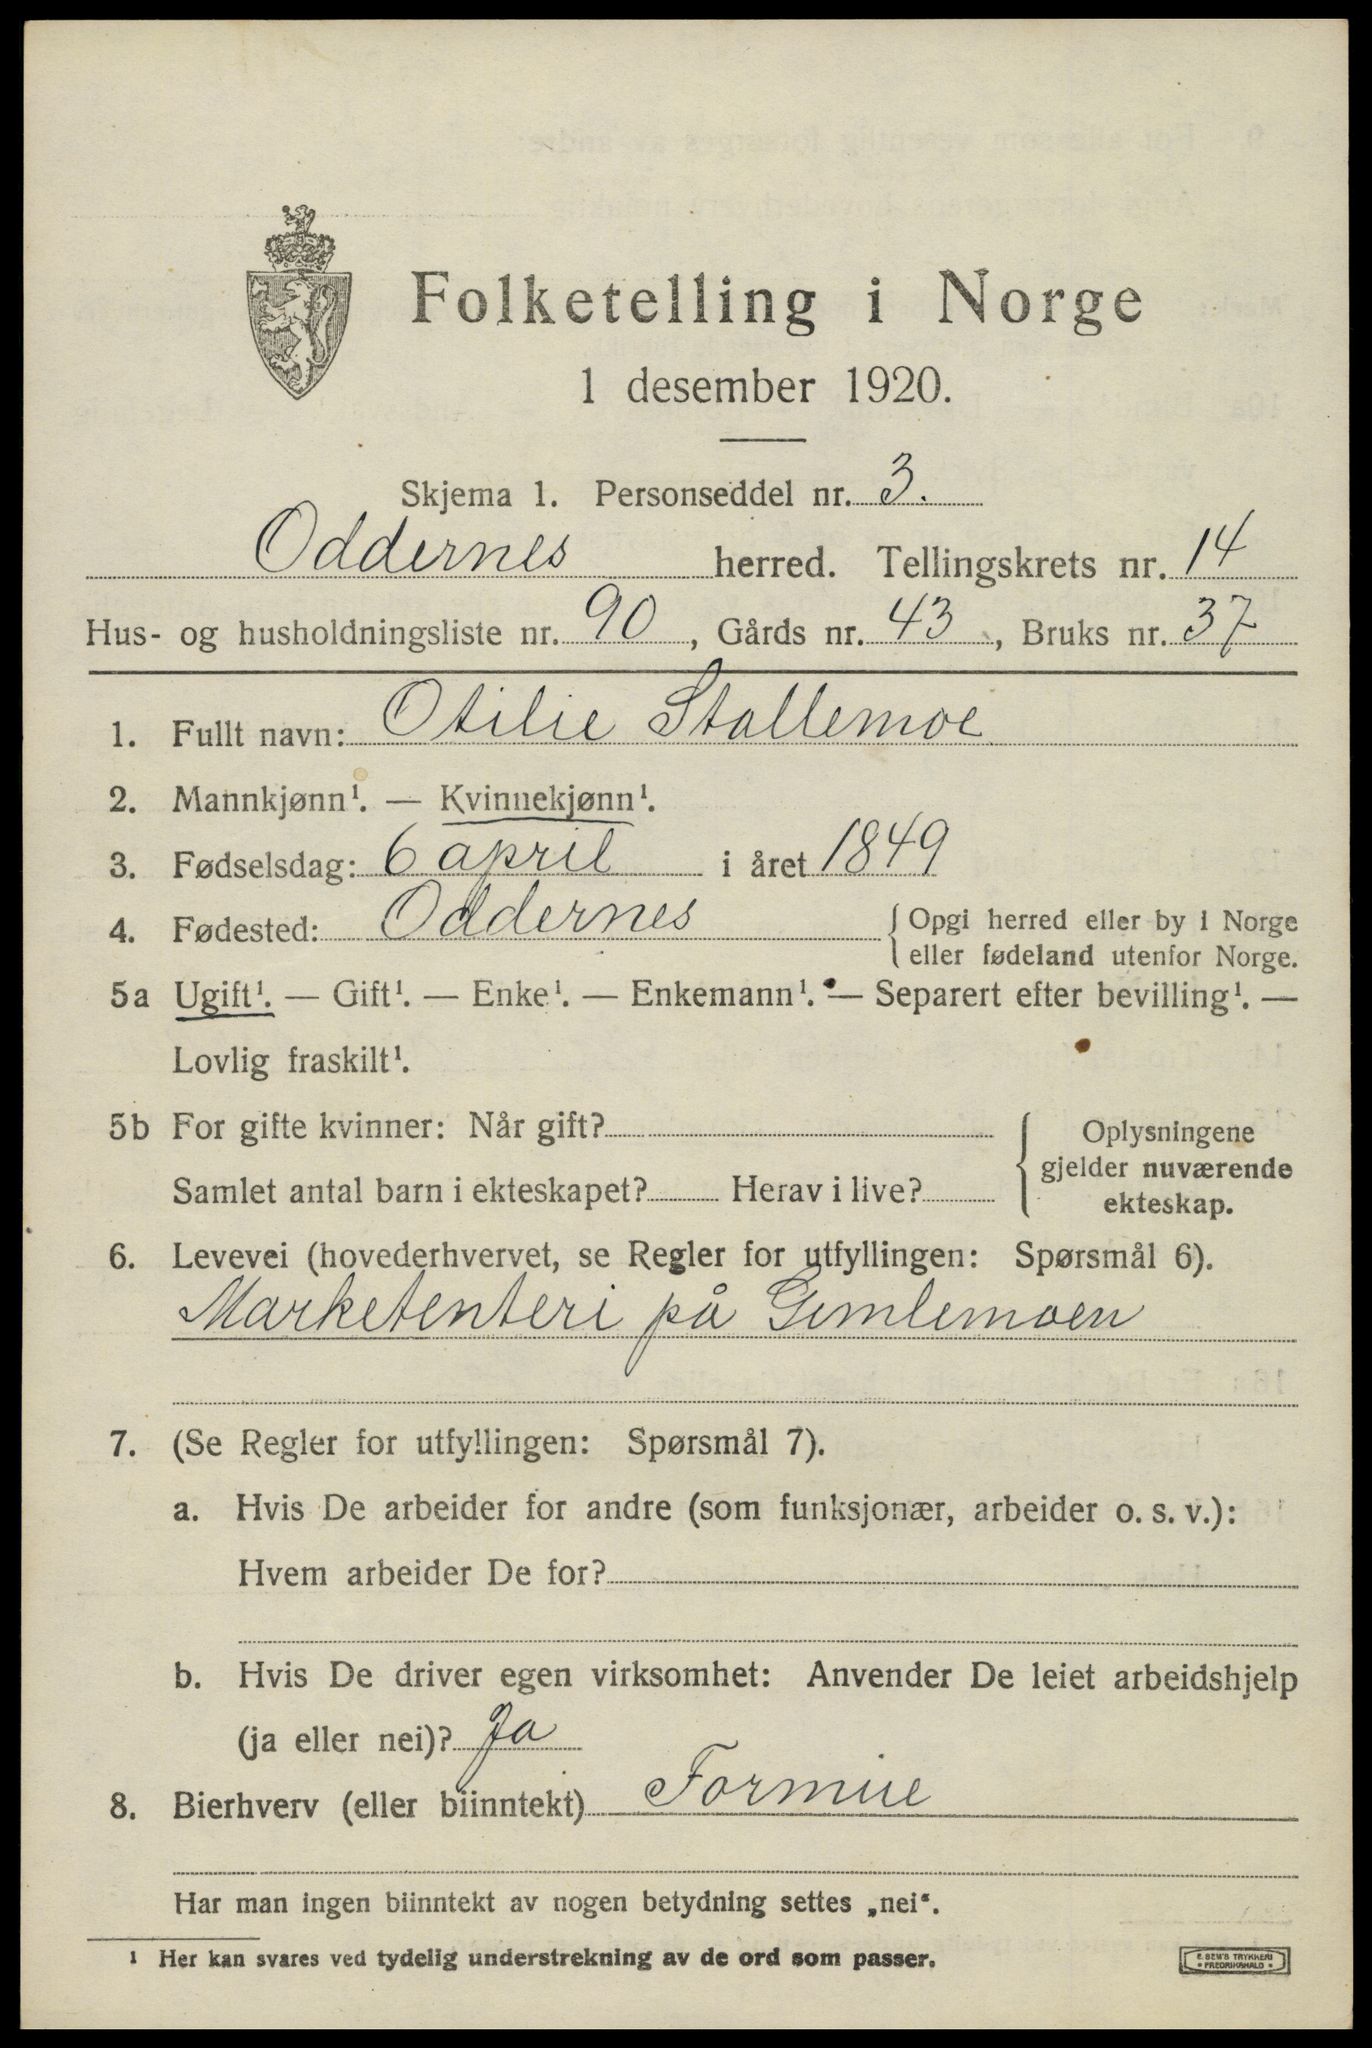 Folketelling i Norge
1 desember 1920.
Skjema 1. Personseddel nr. 3.
Oddernes herred. Tellingskrets nr. 14
Hus- og husholdningsliste nr. 90, Gårds nr. 43, Bruks nr. 37
1. Fullt navn: Otilie Stallemoe
2. Mannkjønn¹. — Kvinnekjønn¹.
3. Fødselsdag: 6 april i året 1849
4. Fødested: Oddernes { Opgi herred eller by i Norge
eller fødeland utenfor Norge.
5a Ugift¹. — Gift¹. — Enke¹. — Enkemann¹. — Separert efter bevilling¹. —
Lovlig fraskilt¹.
5b For gifte kvinner: Når gift?
Samlet antal barn i ekteskapet? Herav i live?
Oplysningene
gjelder nuværende
ekteskap.
6. Levevei (hovederhvervet, se Regler for utfyllingen: Spørsmål 6).
Marketenteri på Gimlemoen
7. (Se Regler for utfyllingen: Spørsmål 7).
a. Hvis De arbeider for andre (som funksjonær, arbeider o. s. v.):
Hvem arbeider De for?
b. Hvis De driver egen virksomhet: Anvender De leiet arbeidshjelp
(ja eller nei)? Ja
8. Bierhverv (eller biinntekt) Formue
Har man ingen biinntekt av nogen betydning settes „nei“.
¹ Her kan svares ved tydelig understrekning av de ord som passer.
E. SEM'S TRYKKERI
• FREDRIKSHALD •